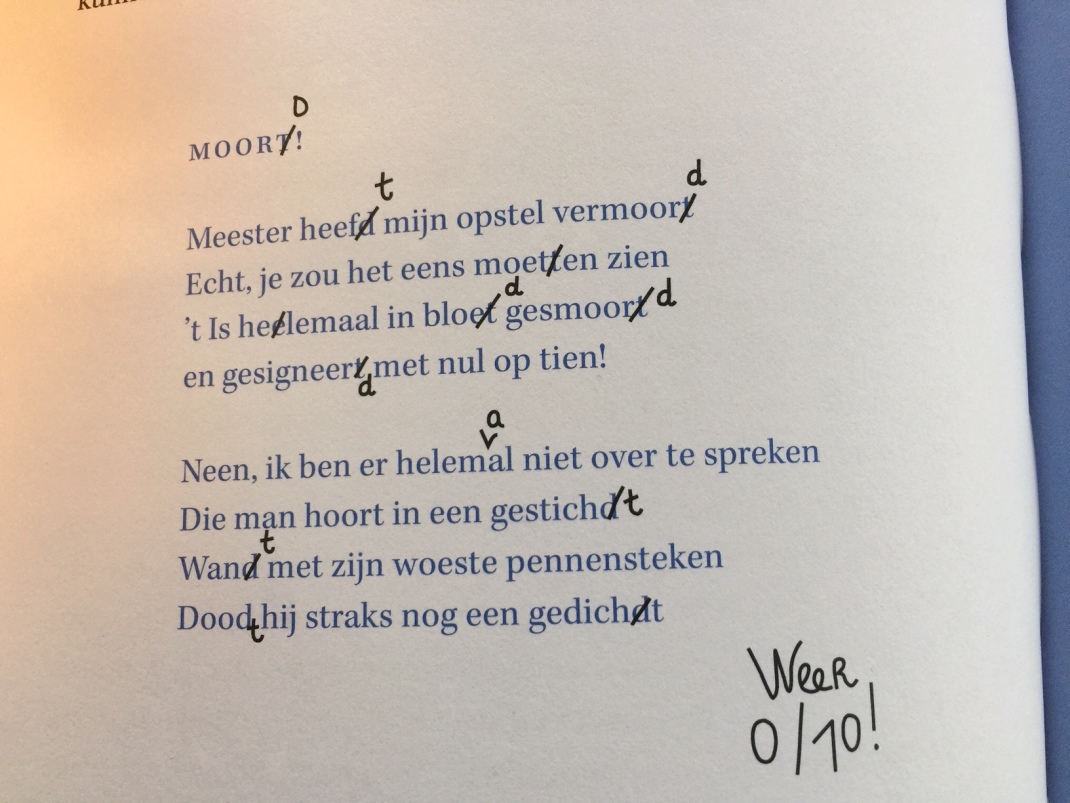 D
MOORT!
t d
Meester heefd mijn opstel vermoort
Echt, je zou het eens moetten zien
d
’t Is heelemaal in bloet gesmoort d
en gesigneert met nul op tien!
d
a
Neen, ik ben er helemal niet over te spreken
Die man hoort in een gestichd t
t
Wand met zijn woeste pennensteken
Dood hij straks nog een gedichdt
t
WeeR
0/10!